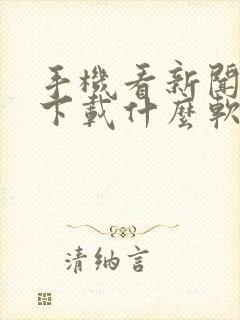 手機看新聞
下載什麼軟
清納言